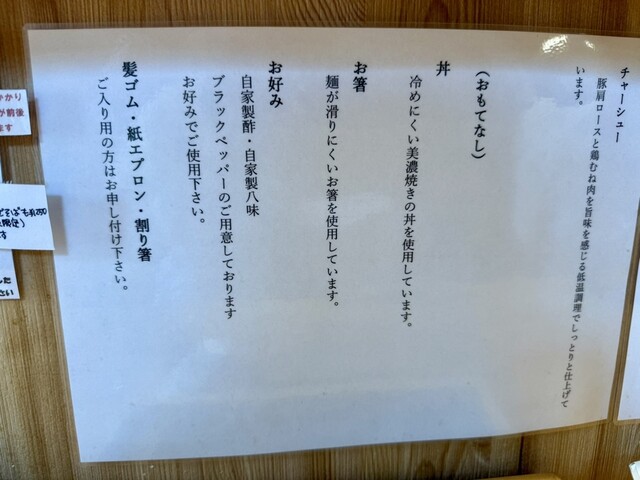 チャーシュー
豚肩ロースと鶏むね肉を旨味を感じる低温調理でしっとりと仕上げて
います。
（おもてなし）
丼
冷めにくい美濃焼きの丼を使用しています。
お箸
麺が滑りにくいお箸を使用しています。
お好み
自家製酢・自家製八味
ブラックペッパーのご用意しております
お好みでご使用下さい。
髪ゴム・紙エプロン・割り箸
ご入り用の方はお申し付け下さい。
かかり
が前後
ます